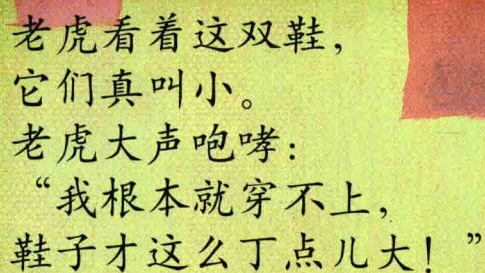 老虎看着这双鞋，
它们真叫小。
老虎大声咆哮：
“我根本就穿不上，
鞋子才这么丁点儿大！”